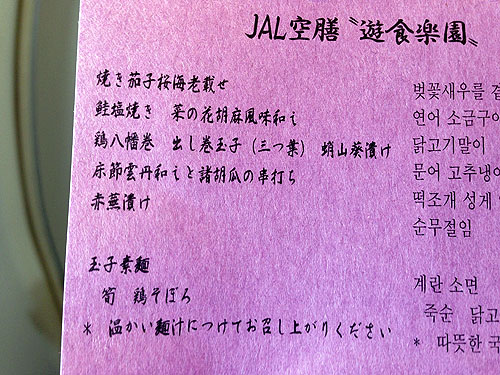 JAL空膳〝遊食楽園〟
焼き茄子桜海老載せ
벚꽃새우를 곁
鮭塩焼き　菜の花胡麻風味和え
연어 소금구이
鶏八幡巻　出し巻玉子（三つ葉）　蛸山葵漬け
닭고기말이
문어 고추냉이
床節雲丹和えと諸胡瓜の串打ち
떡조개 성게
赤蕪漬け
순무절임
玉子素麺
계란 소면
筍　鶏そぼろ
죽순　닭고
* 温かい麺汁につけてお召し上がりください
* 따뜻한 국